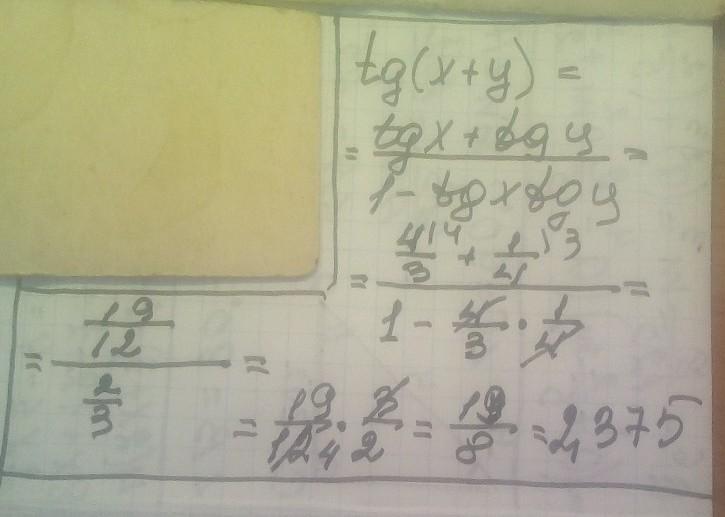 tg(x+y) =
= (tgx + tgy) / (1 - tgx tgy) =
= (4/3 |4 + 1/4 |3) / (1 - 4/3 · 1/4) =
= (19/12) / (2/3) =
= 19/12 4 · 3/2 = 19/8 = 2,375